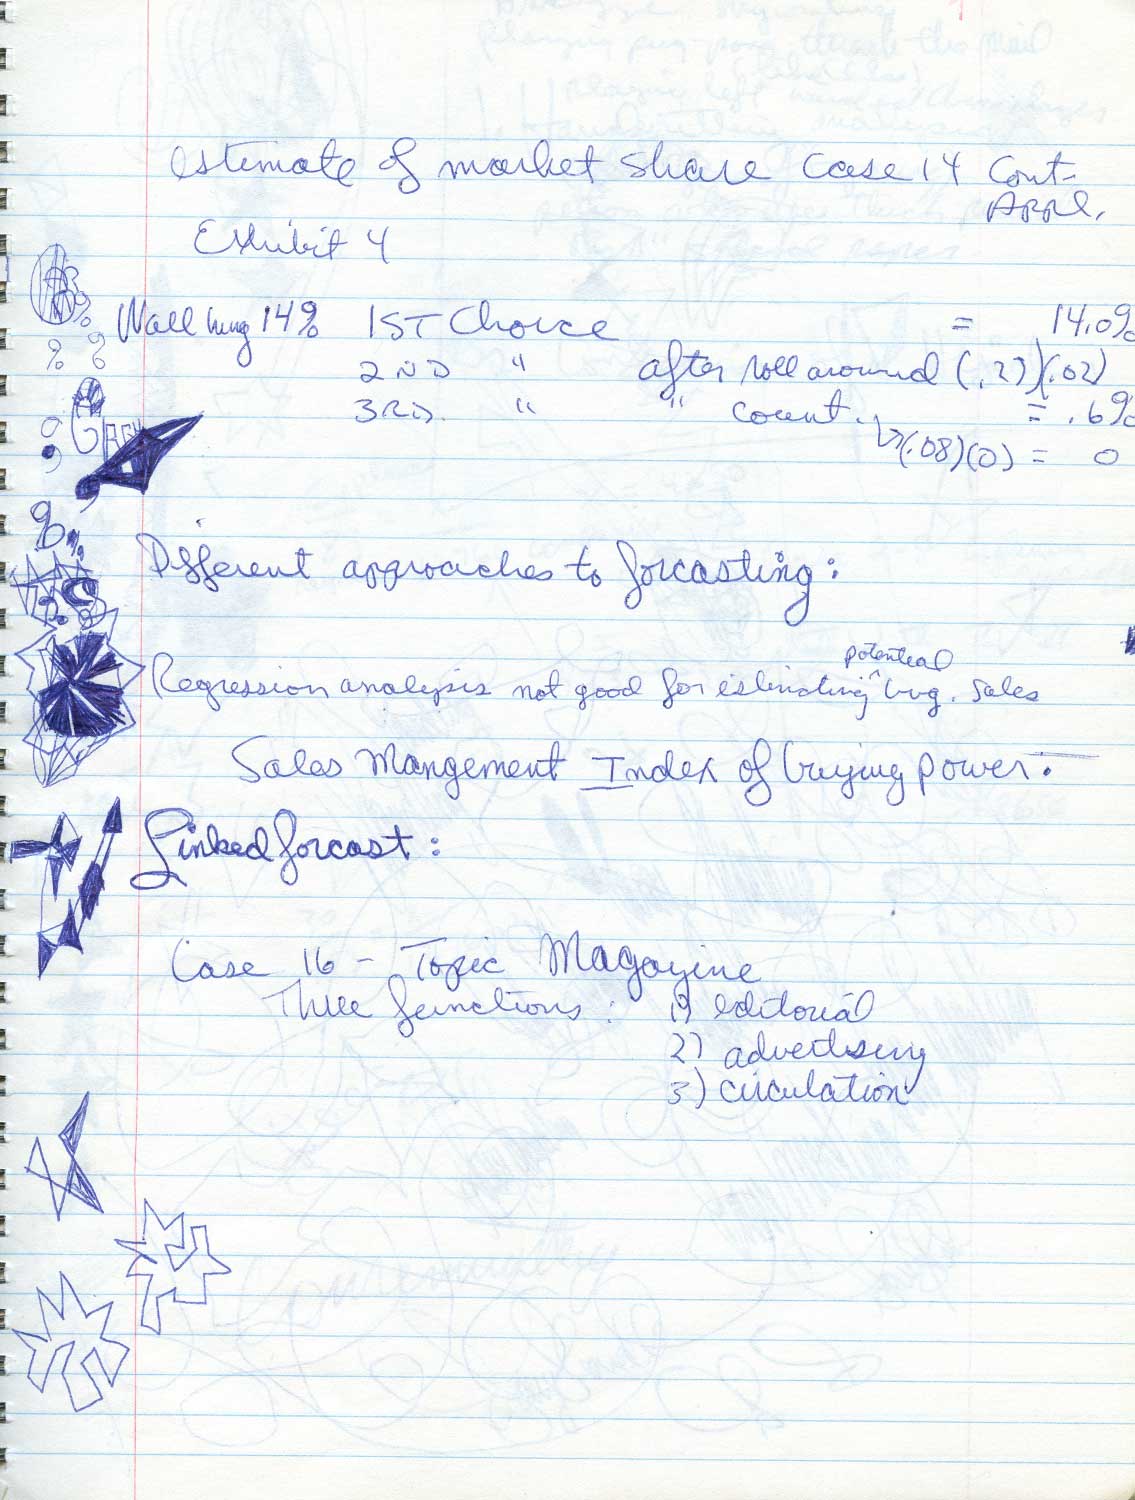 estimate of market share Case 14 Cont-
Appl.
Exhibit 4
Wall hung 14% 1ST Choice = 14.0%
2ND " after roll around (.27)(.02)
3RD. " " count. = .6%
(.08)(0) = 0
Different approaches to forcasting:
potential
Regression analysis not good for estimating ^ . Sales
Sales Mangement Index of buying power.
Linked forcast:
Case 16 - Topic Magazine
Three functions: 1) editorial
2) advertising
3) circulation